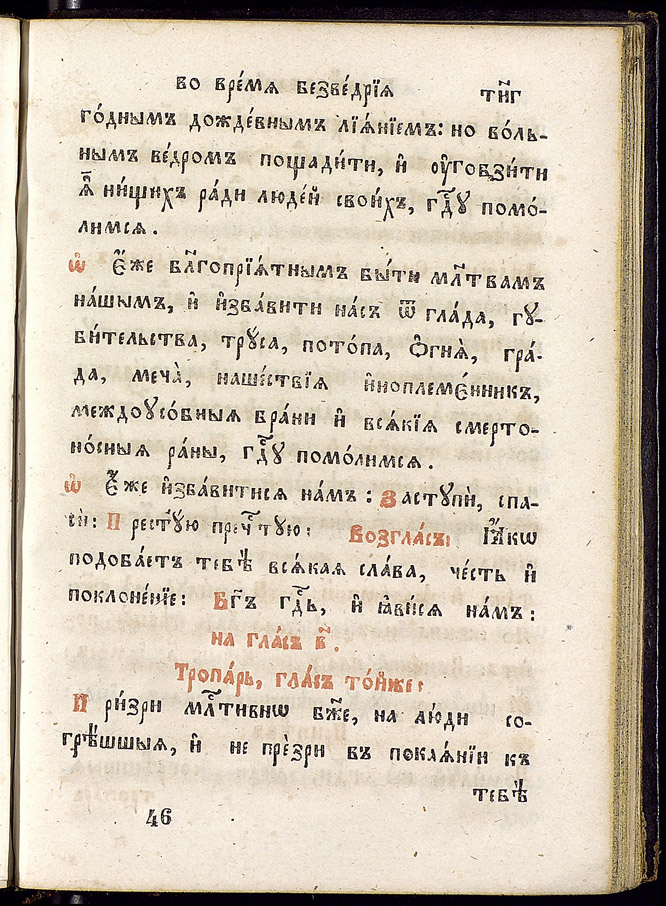 во вре́мѧ безве́дрїѧ тн҃г
го́днымъ дожде́внымъ лїѧ́нїемъ: но во́ль-
нымъ ве́дромъ пощади́ти, и҆ ᲂу҆гобзи́ти
ю҆̀ ни́щихъ ра́ди люде́й свои́хъ, гдⷭ҇ꙋ помо́-
лимсѧ.
Ѡ҆ Є҆́же бл҃гопрїѧ́тнымъ бы́ти мл҃твамъ
на́шымъ, и҆ и҆зба́вити на́съ ѿ гла́да, гꙋ-
би́тельства, трꙋ́са, пото́па, ѻ҆гнѧ̀, гра́-
да, меча̀, наше́ствїѧ и҆ноплеме́нникъ,
междоꙋсо́бныѧ бра́ни и҆ всѧ́кїѧ смерто-
но́сныѧ ра́ны, гдⷭ҇ꙋ помо́лимсѧ.
Ѡ҆ Є҆́же и҆зба́витисѧ на́мъ: Застꙋпѝ, спа-
сѝ: Прест҃ꙋю пречⷭ҇тꙋю: Возгла́съ: Ꙗ҆́кѡ
подоба́етъ тебѣ̀ всѧ́каѧ сла́ва, че́сть и҆
поклоне́нїе: Бг҃ъ гдⷭ҇ь, и҆ ꙗ҆ви́сѧ на́мъ:
на гла́съ в҃.
Тропа́рь, гла́съ то́йже:
При́зри млⷭ҇тивнѡ бж҃е, на лю́ди со-
грѣ́шшыѧ, и҆ не пре́зри въ покаѧ́нїи къ
тебѣ̀
46